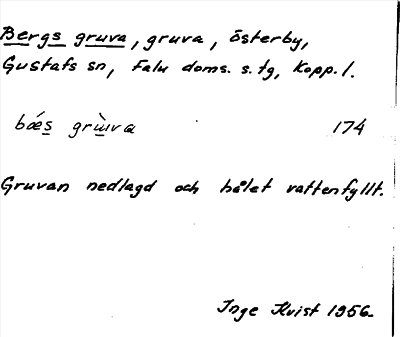 Bergs gruva, gruva, Österby,
Gustafs sn, Falu doms. s. tg, Kopp. l.
bǽs grùɯva 174
Gruvan nedlagd och hålet vattenfyllt.
Inge Kvist 1956.